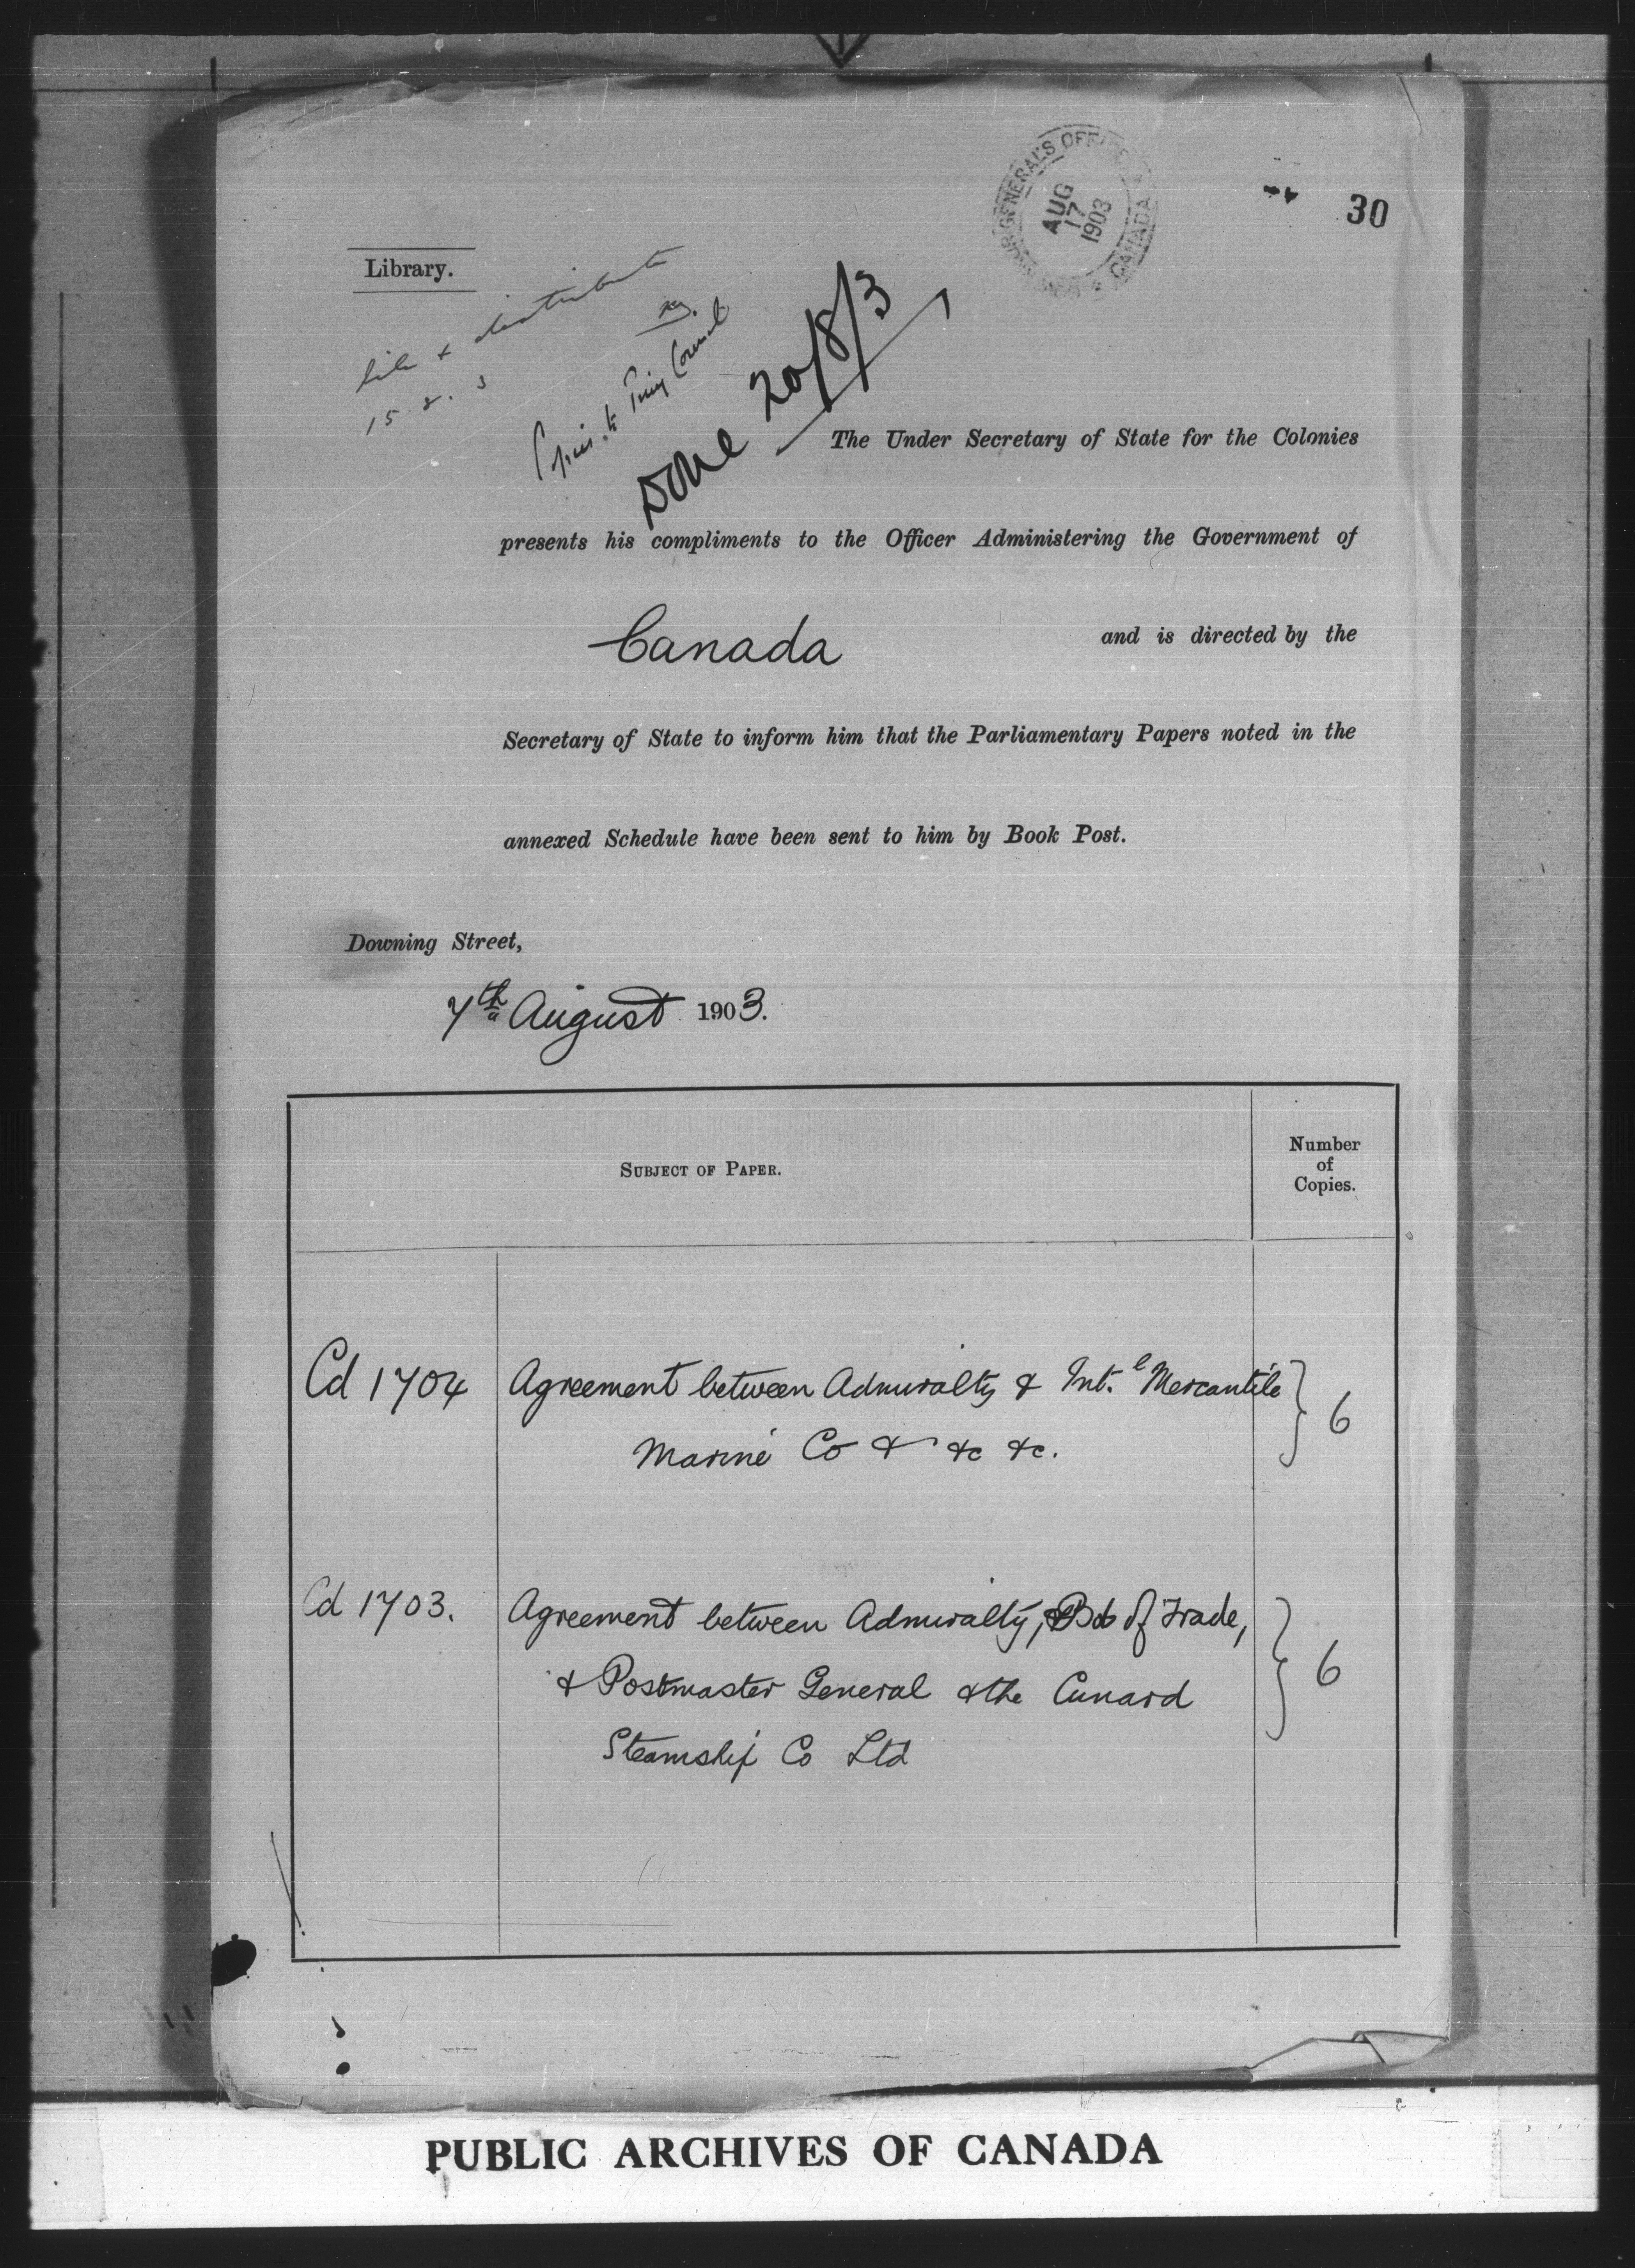 GOVERNOR GENERAL'S OFFICE
AUG
17
1903
CANADA
30
Library.
file & distribute
15.8.3
Copies to Privy Council
Done 20/8/3
The Under Secretary of State for the Colonies
presents his compliments to the Officer Administering the Government of
Canada and is directed by the
Secretary of State to inform him that the Parliamentary Papers noted in the
annexed Schedule have been sent to him by Book Post.
Downing Street,
7th August 1903.
SUBJECT OF PAPER.
Number
of
Copies.
Cd 1704 Agreement between Admiralty & Int.l Mercantile 6
Marine Co & &c &c.
Cd 1703. Agreement between Admiralty, Bd of Trade,
& Postmaster General & the Cunard 6
Steamship Co Ltd
PUBLIC ARCHIVES OF CANADA